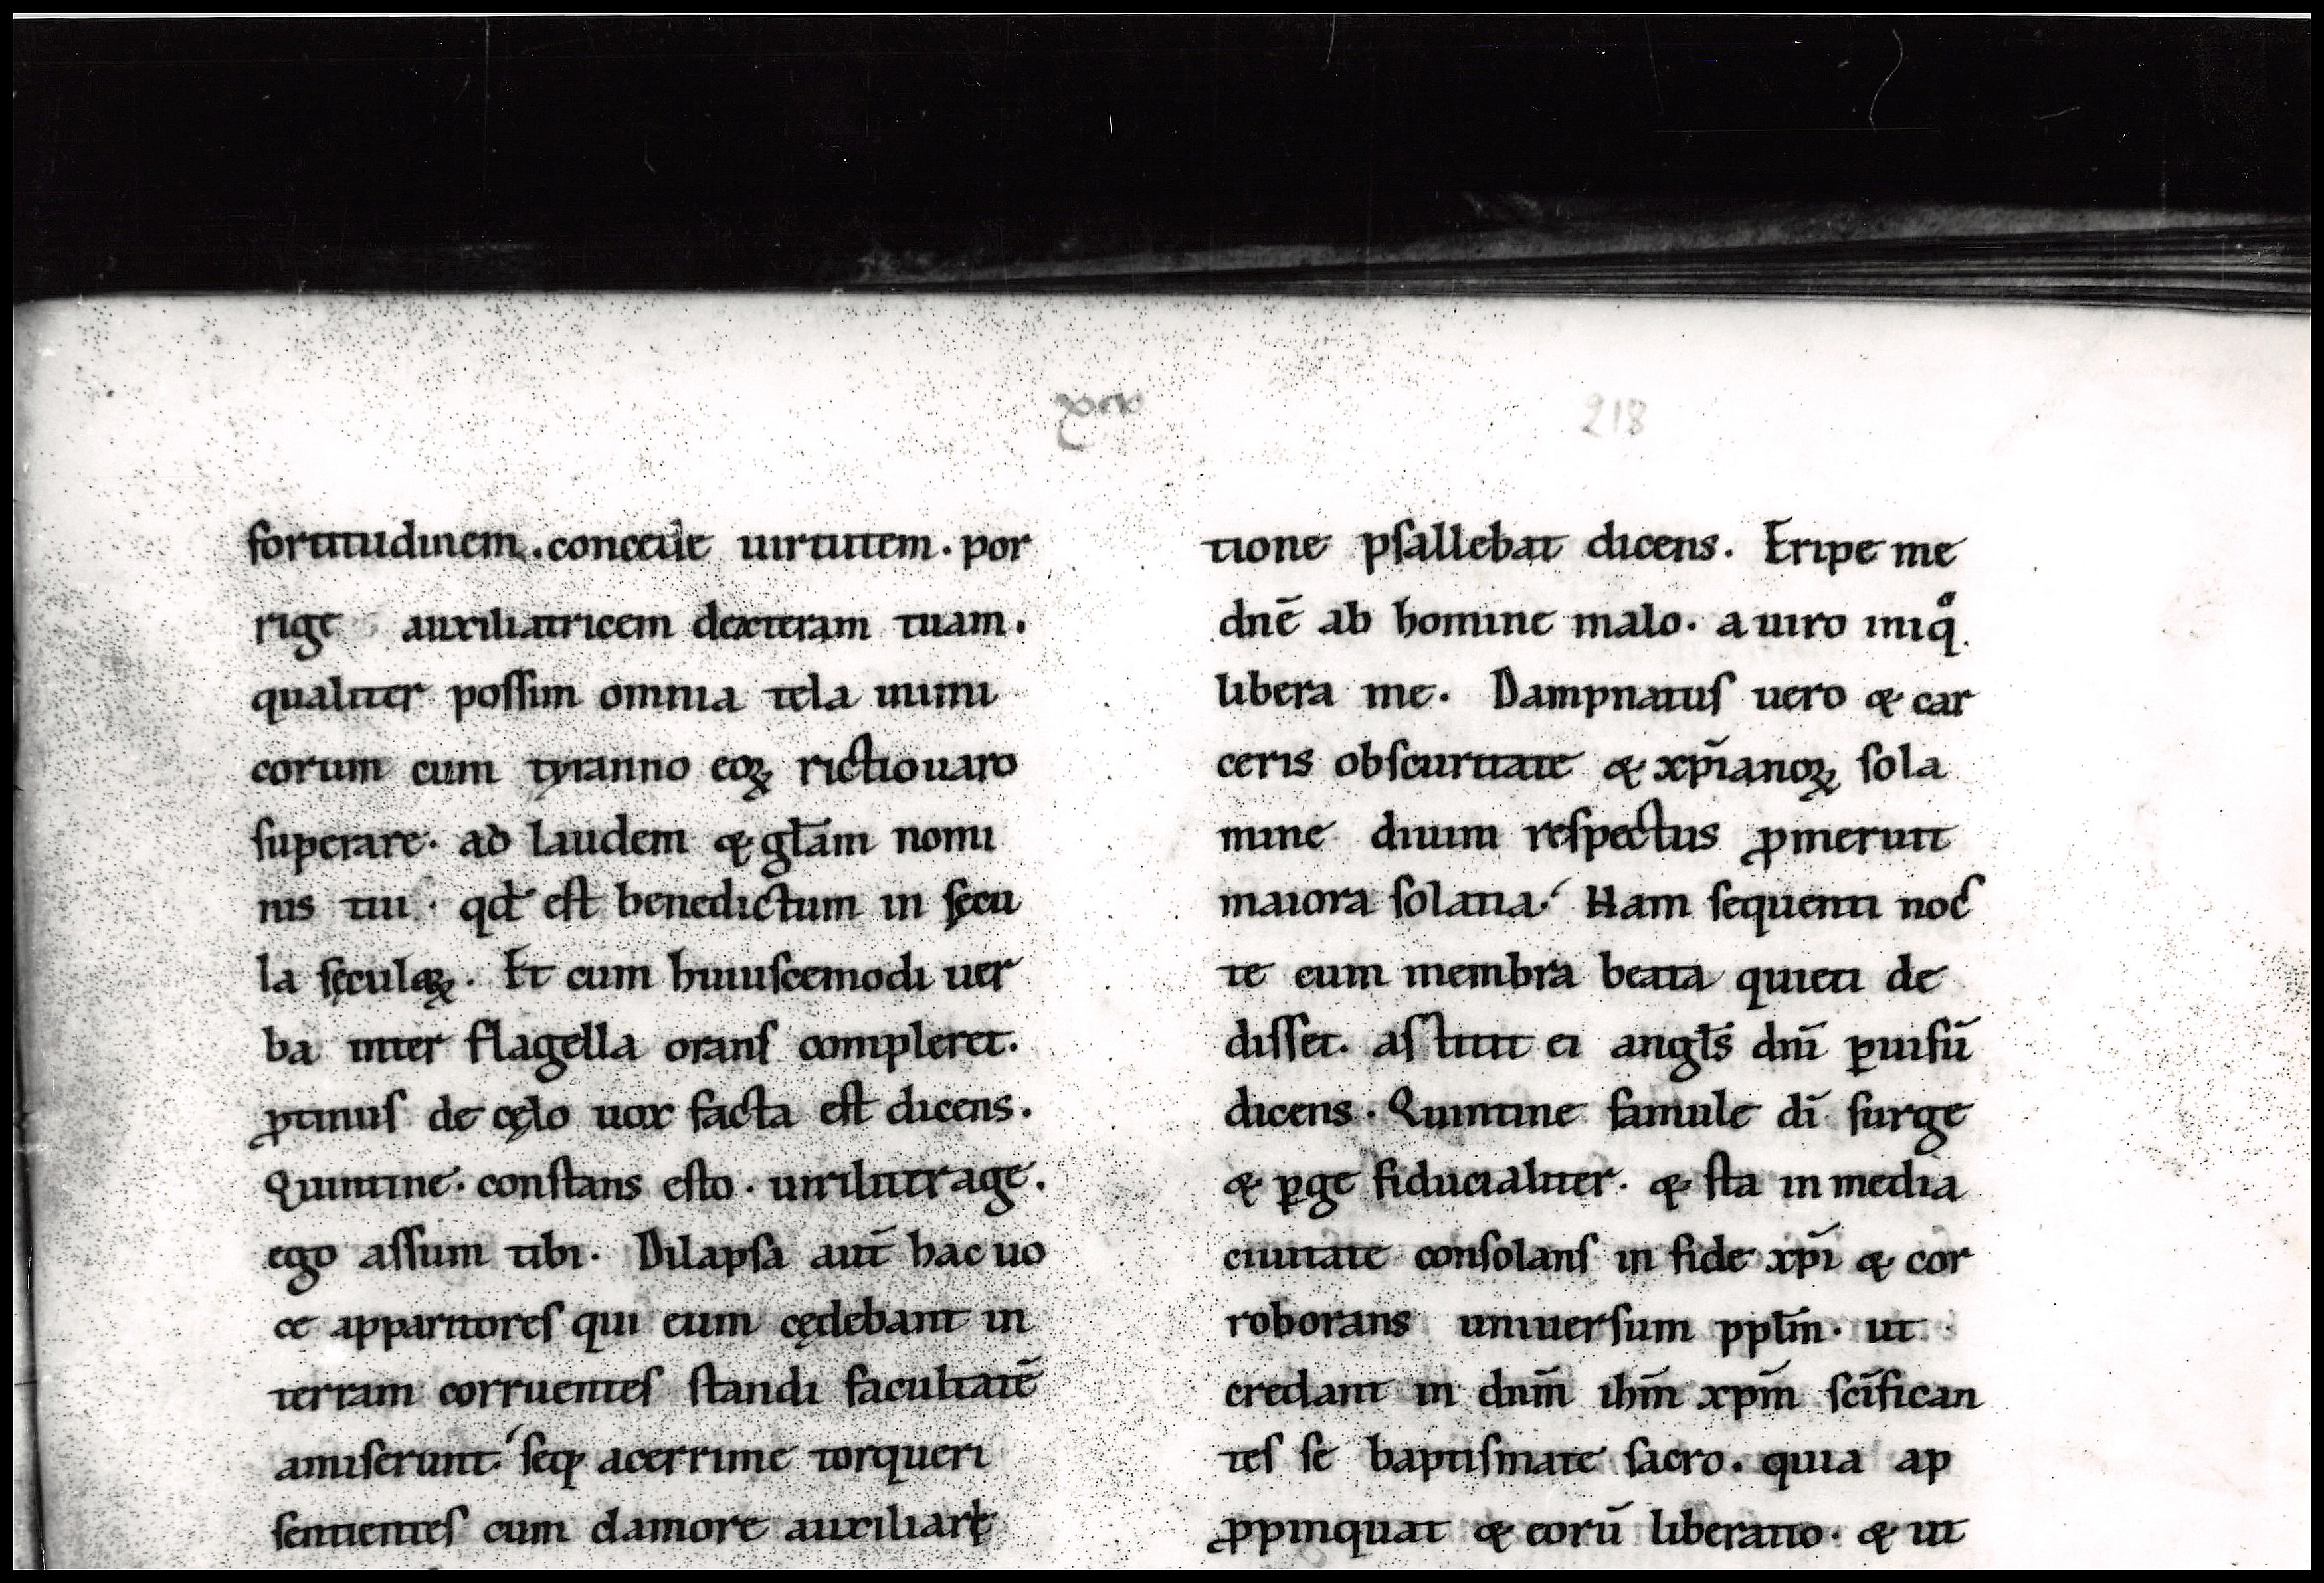 xciv
218
fortitudinem. concede uirtutem. por
rige auxiliatricem dexteram tuam.
qualiter possim omnia tela inimi
corum cum tyranno eoꝝ rictiouaro
superare. ad laudem & gl̄am nomi
nis tui. qd̄ est benedictum in sęcu
la sęculoꝝ. Et cum huiuscemodi uer
ba inter flagella orans compleret.
ꝓtinus de cęlo uox facta est dicens.
Quintine. constans esto. uiriliter age.
ego assum tibi. Dilapsa aut̄ hac uo
ce apparitores qui eum cędebant in
terram corruentes standi facultatē
amiserunt. seqꝫ acerrime torqueri
sentientes cum clamore auxiliari
tione psallebat dicens. Eripe me
dn̄e ab homine malo. a uiro iniqͦ.
libera me. Dampnatus uero & car
ceris obscuritate & xp̄ianoꝝ sola
mine diuini respectus ꝓmeruit
maiora solatia. Nam sequenti noc
te cum membra beata quieti de
disset. astitit ei angl̄s dn̄i ꝑuisū
dicens. Quintine famule dī surge
& ꝑge fiducialiter. & sta in media
ciuitate consolans in fide xp̄i & cor
roborans uniuersum ppl̄m. ut
credant in dn̄m ih̄m xp̄m sc̄ifican
tes se baptismate sacro. quia ap
ꝓpinquat & eorū liberatio. & ut